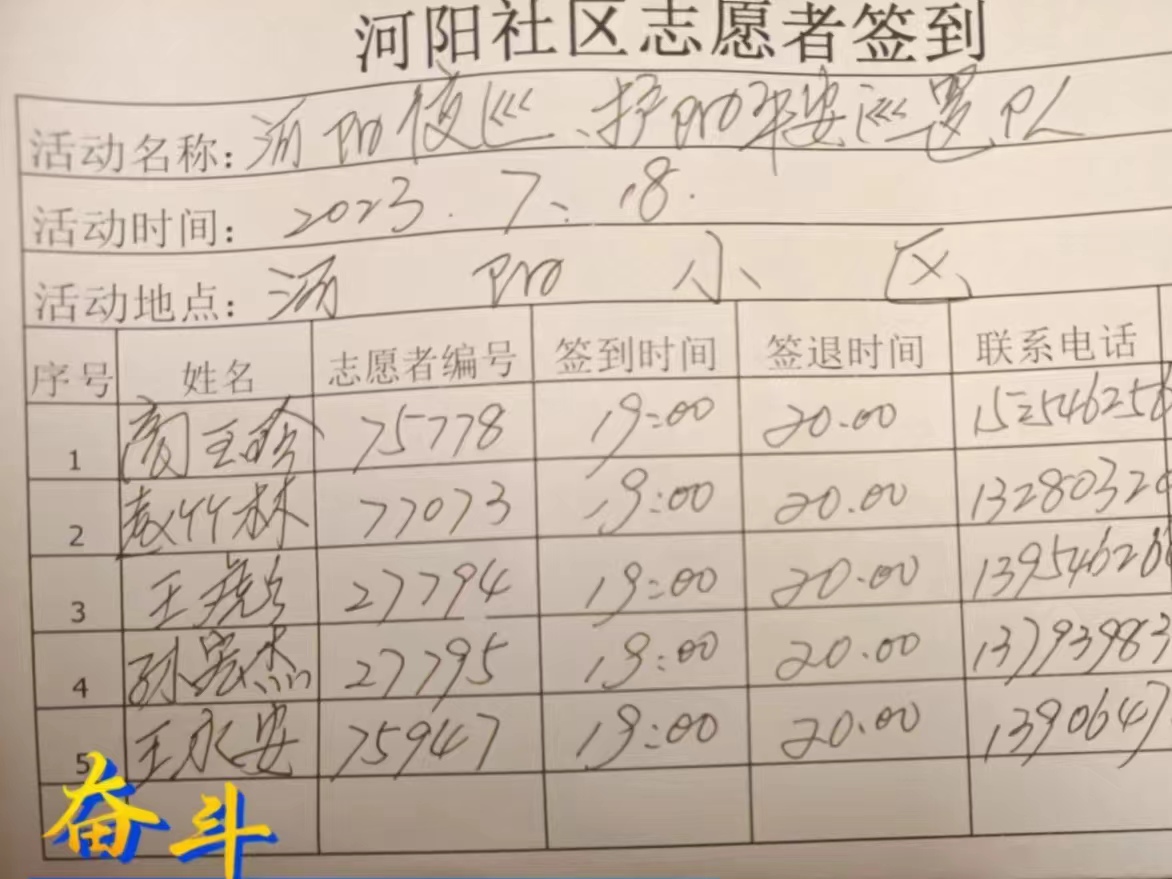 河阳社区志愿者签到
活动名称: 河阳夜巡、护阳平安巡逻队
活动时间: 2023.7、18.
活动地点: 河阳小区
序号 姓名 志愿者编号 签到时间 签退时间 联系电话
1 75778 19:00 20.00
2 袁竹林 77073 19:00 20.00 1328032
3 27794 19:00 20.00 139546
4 孙宏杰 27795 19:00 20.00 13793983
5 王永安 75947 19:00 20.00 1390647
奋斗